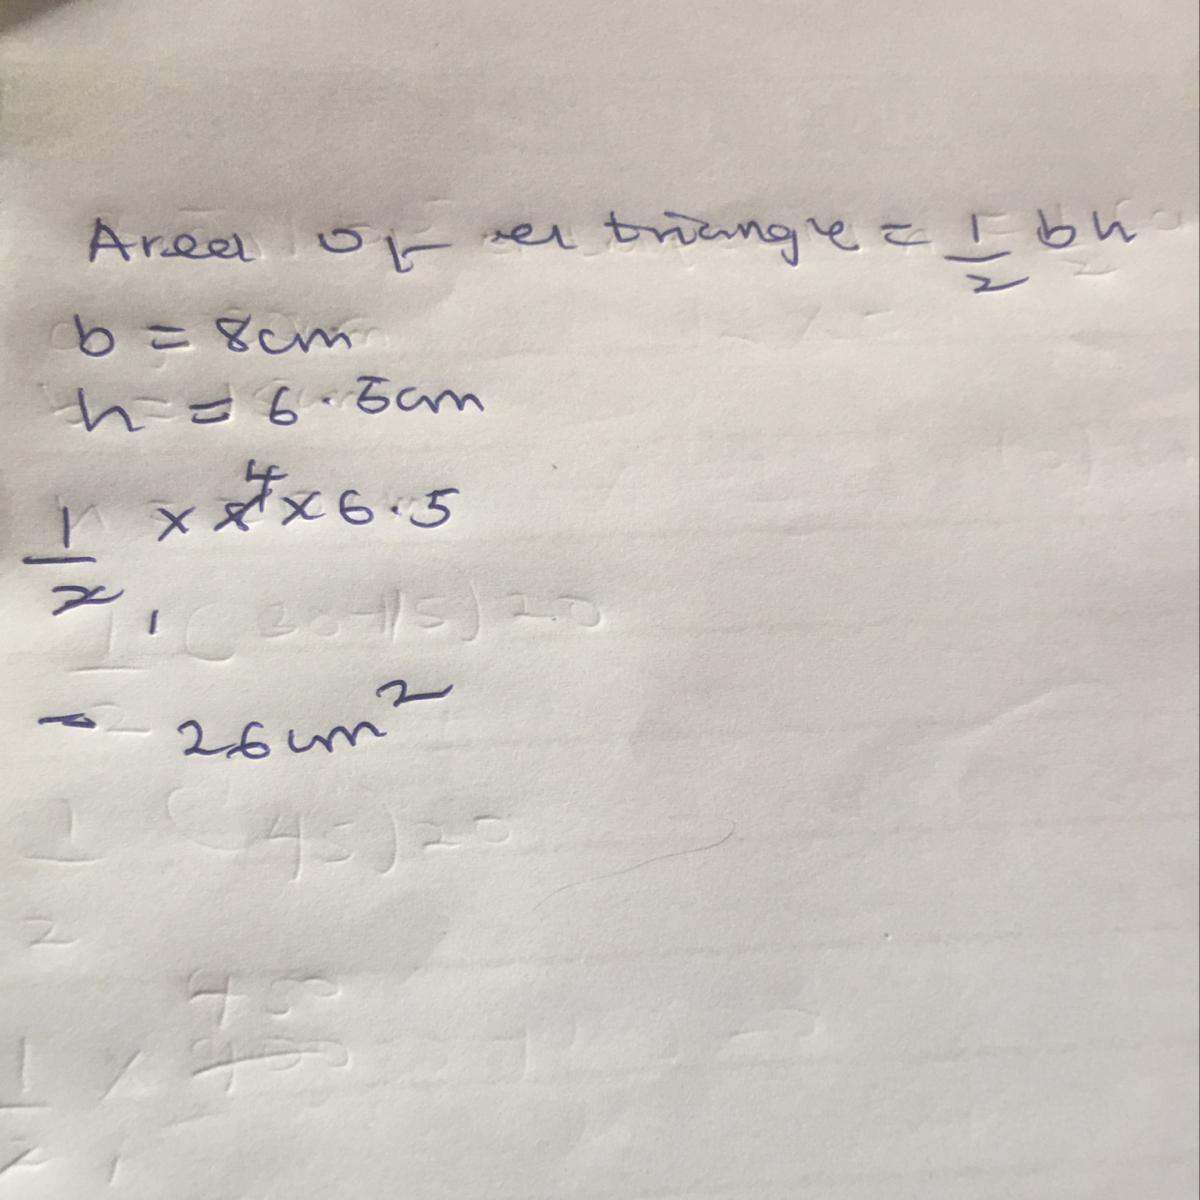 Area of a triangle = 1/2 bh
b = 8cm
h = 6.5cm
1/2 × 8 4 × 6.5
1
= 26cm²
1/2 (45)20